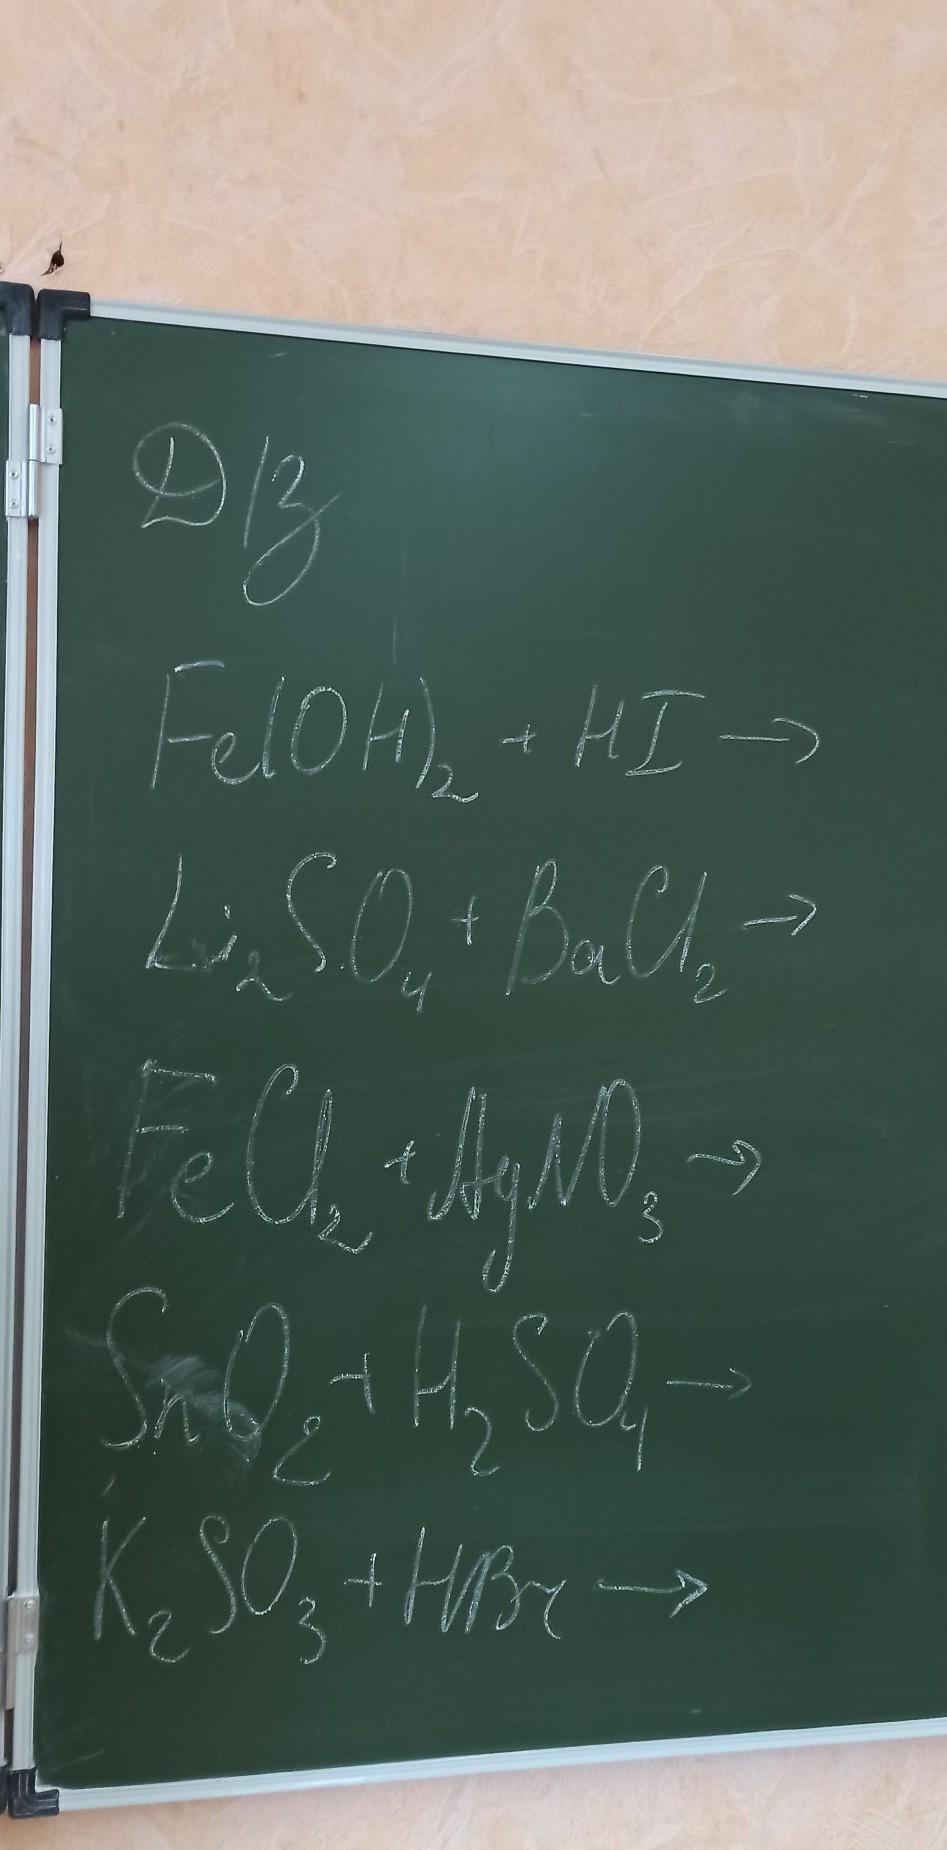 Д/з
Fe(OH)₂ + HI →
Li₂SO₄ + BaCl₂ →
FeCl₂ + AgNO₃ →
SnO₂ + H₂SO₄ →
K₂SO₃ + HBr →